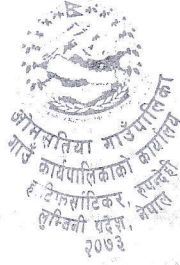 ओमसतिया गाउँपालिका
गाउँ कार्यपालिकाको कार्यालय
टिकर, रुपन्देही
लुम्बिनी प्रदेश, नेपाल
२०७३